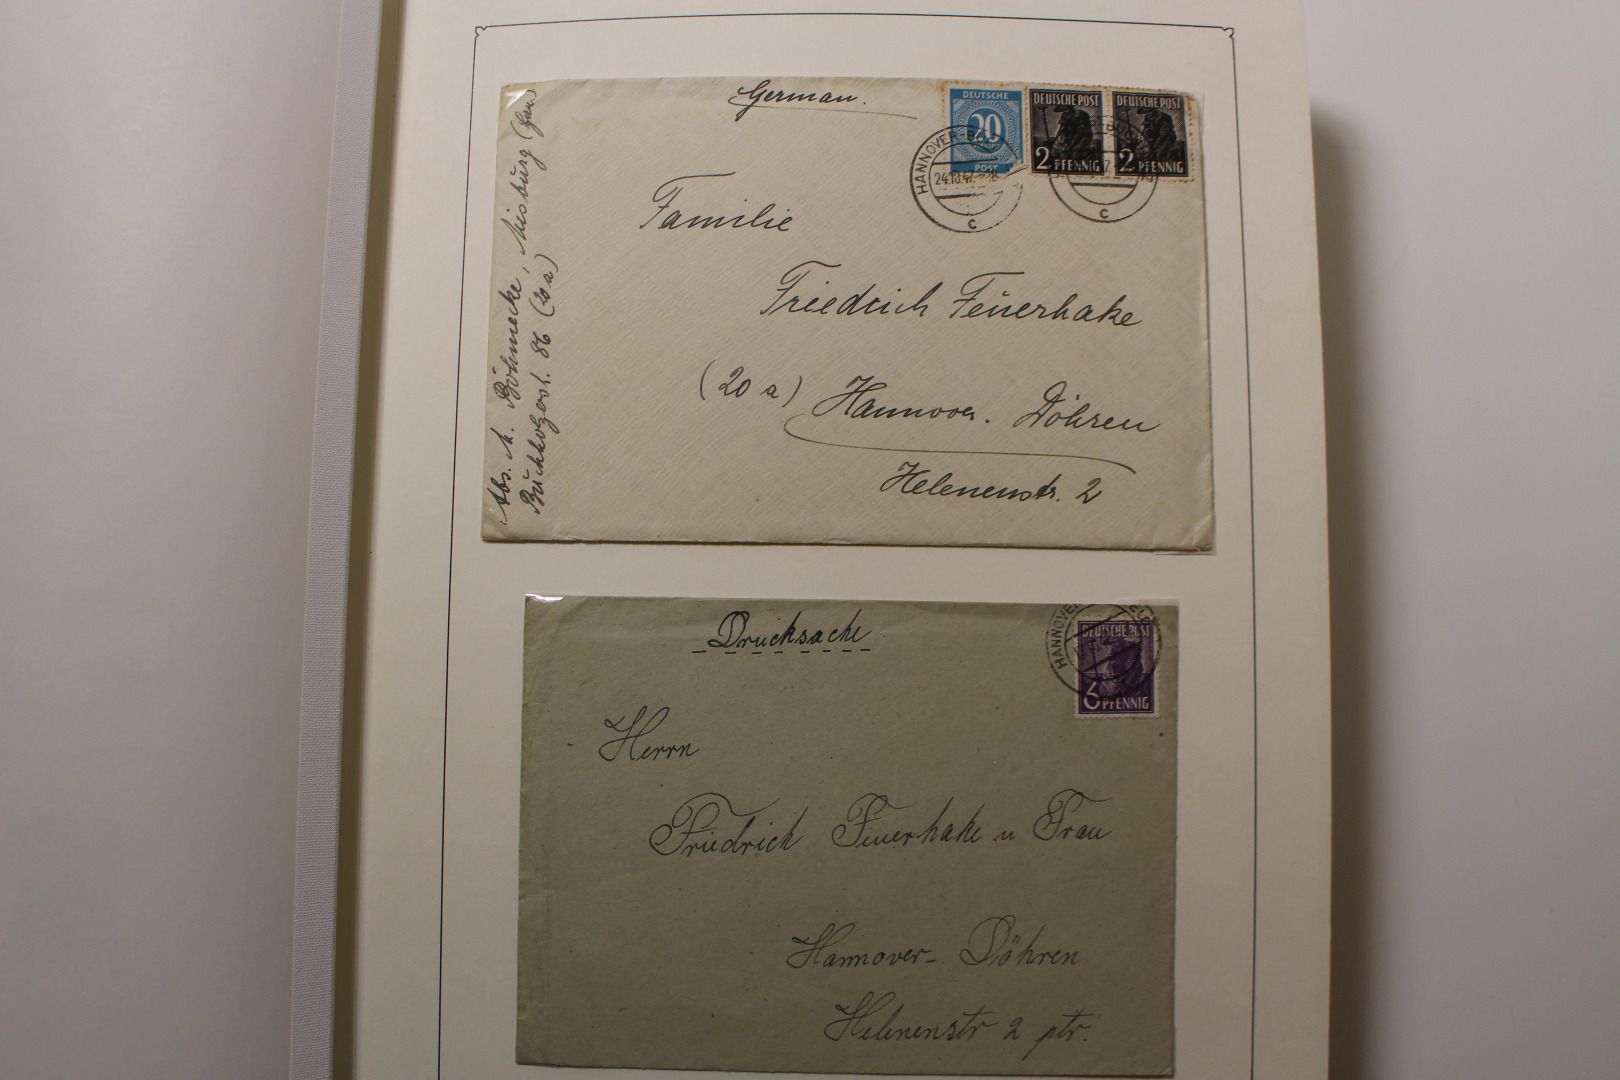 German.
DEUTSCHE
20
POST
DEUTSCHE POST
2 PFENNIG
DEUTSCHE POST
2 PFENNIG
HANNOVER
24.10.47
c
c
Familie
Friedrich Feuerhake
(20 a) Hannover. Döhren
Helenenstr. 2
Abs. M. Böhnecke, Misburg (Han)
Buchholzerst. 86 (20 a)
Drucksache
HANNOVER
DEUTSCHE POST
6 PFENNIG
Herrn
Friedrich Feuerhake u Frau
Hannover-Döhren
Helenenstr 2 ptr.